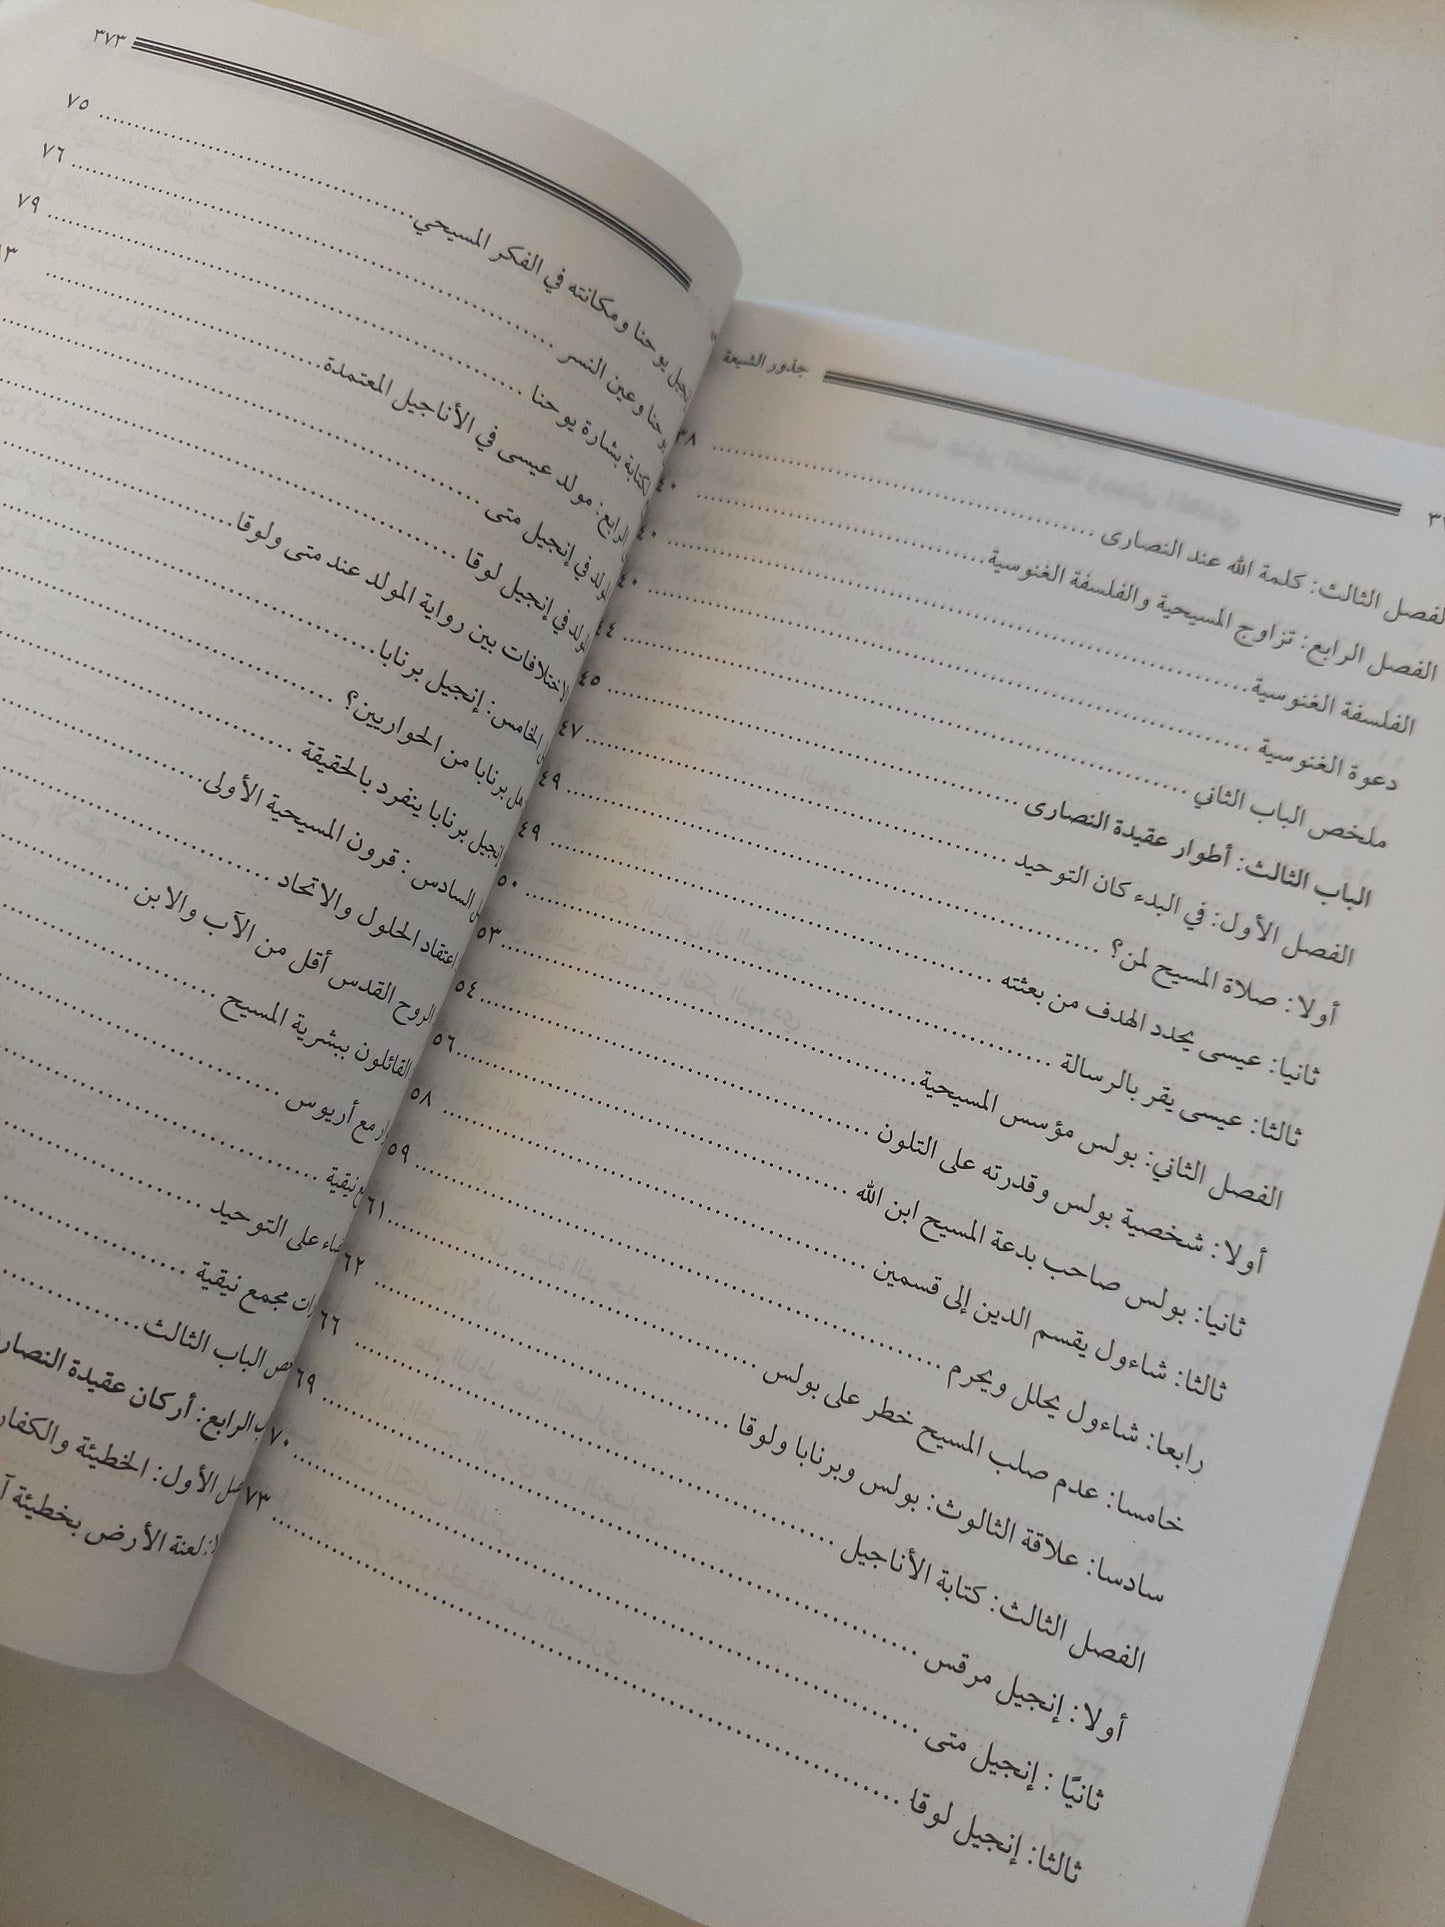 جذور الشيعة
الفصل الثالث: كلمة الله عند النصارى ٣٨
الفصل الرابع: تزاوج المسيحية والفلسفة الغنوسية ٤٠
الفلسفة الغنوسية ٤٠
دعوة الغنوسية ٤٠
ملخص الباب الثاني ٤٤
الباب الثالث: أطوار عقيدة النصارى ٤٥
الفصل الأول: في البدء كان التوحيد ٤٧
أولا: صلاة المسيح لمن؟ ٤٩
ثانيا: عيسى يحدد الهدف من بعثته ٤٩
ثالثا: عيسى يقر بالرسالة ٥٠
الفصل الثاني: بولس مؤسس المسيحية ٥٣
أولا: شخصية بولس وقدرته على التلون ٥٤
ثانيا: بولس صاحب بدعة المسيح ابن الله ٥٦
ثالثا: شاءول يقسم الدين إلى قسمين ٥٨
رابعا: شاءول يحلل ويحرم ٥٩
خامسا: عدم صلب المسيح خطر على بولس ٦١
سادسا: علاقة الثالوث: بولس وبرنابا ولوقا ٦٢
الفصل الثالث: كتابة الأناجيل ٦٦
أولا: إنجيل مرقس ٦٩
ثانيًا: إنجيل متى ٧٠
ثالثا: إنجيل لوقا ٧٣
٣٧٣
يوحنا ومكانته في الفكر المسيحي ٧٥
وعين النسر ٧٦
بشارة يوحنا ٧٩
الرابع: مولد عيسى في الأناجيل المعتمدة
في إنجيل متى
في إنجيل لوقا
الاختلافات بين رواية المولد عند متى ولوقا
الخامس: إنجيل برنابا
هل برنابا من الحواريين؟
إنجيل برنابا ينفرد بالحقيقة
السادس: قرون المسيحية الأولى
اعتقاد الحلول والاتحاد
الروح القدس أقل من الآب والابن
القائلون ببشرية المسيح
مع أريوس
نيقية
على التوحيد
مجمع نيقية
الباب الثالث
الرابع: أركان عقيدة
الأول: الخطيئة
لعنة الأرض بخطيئة